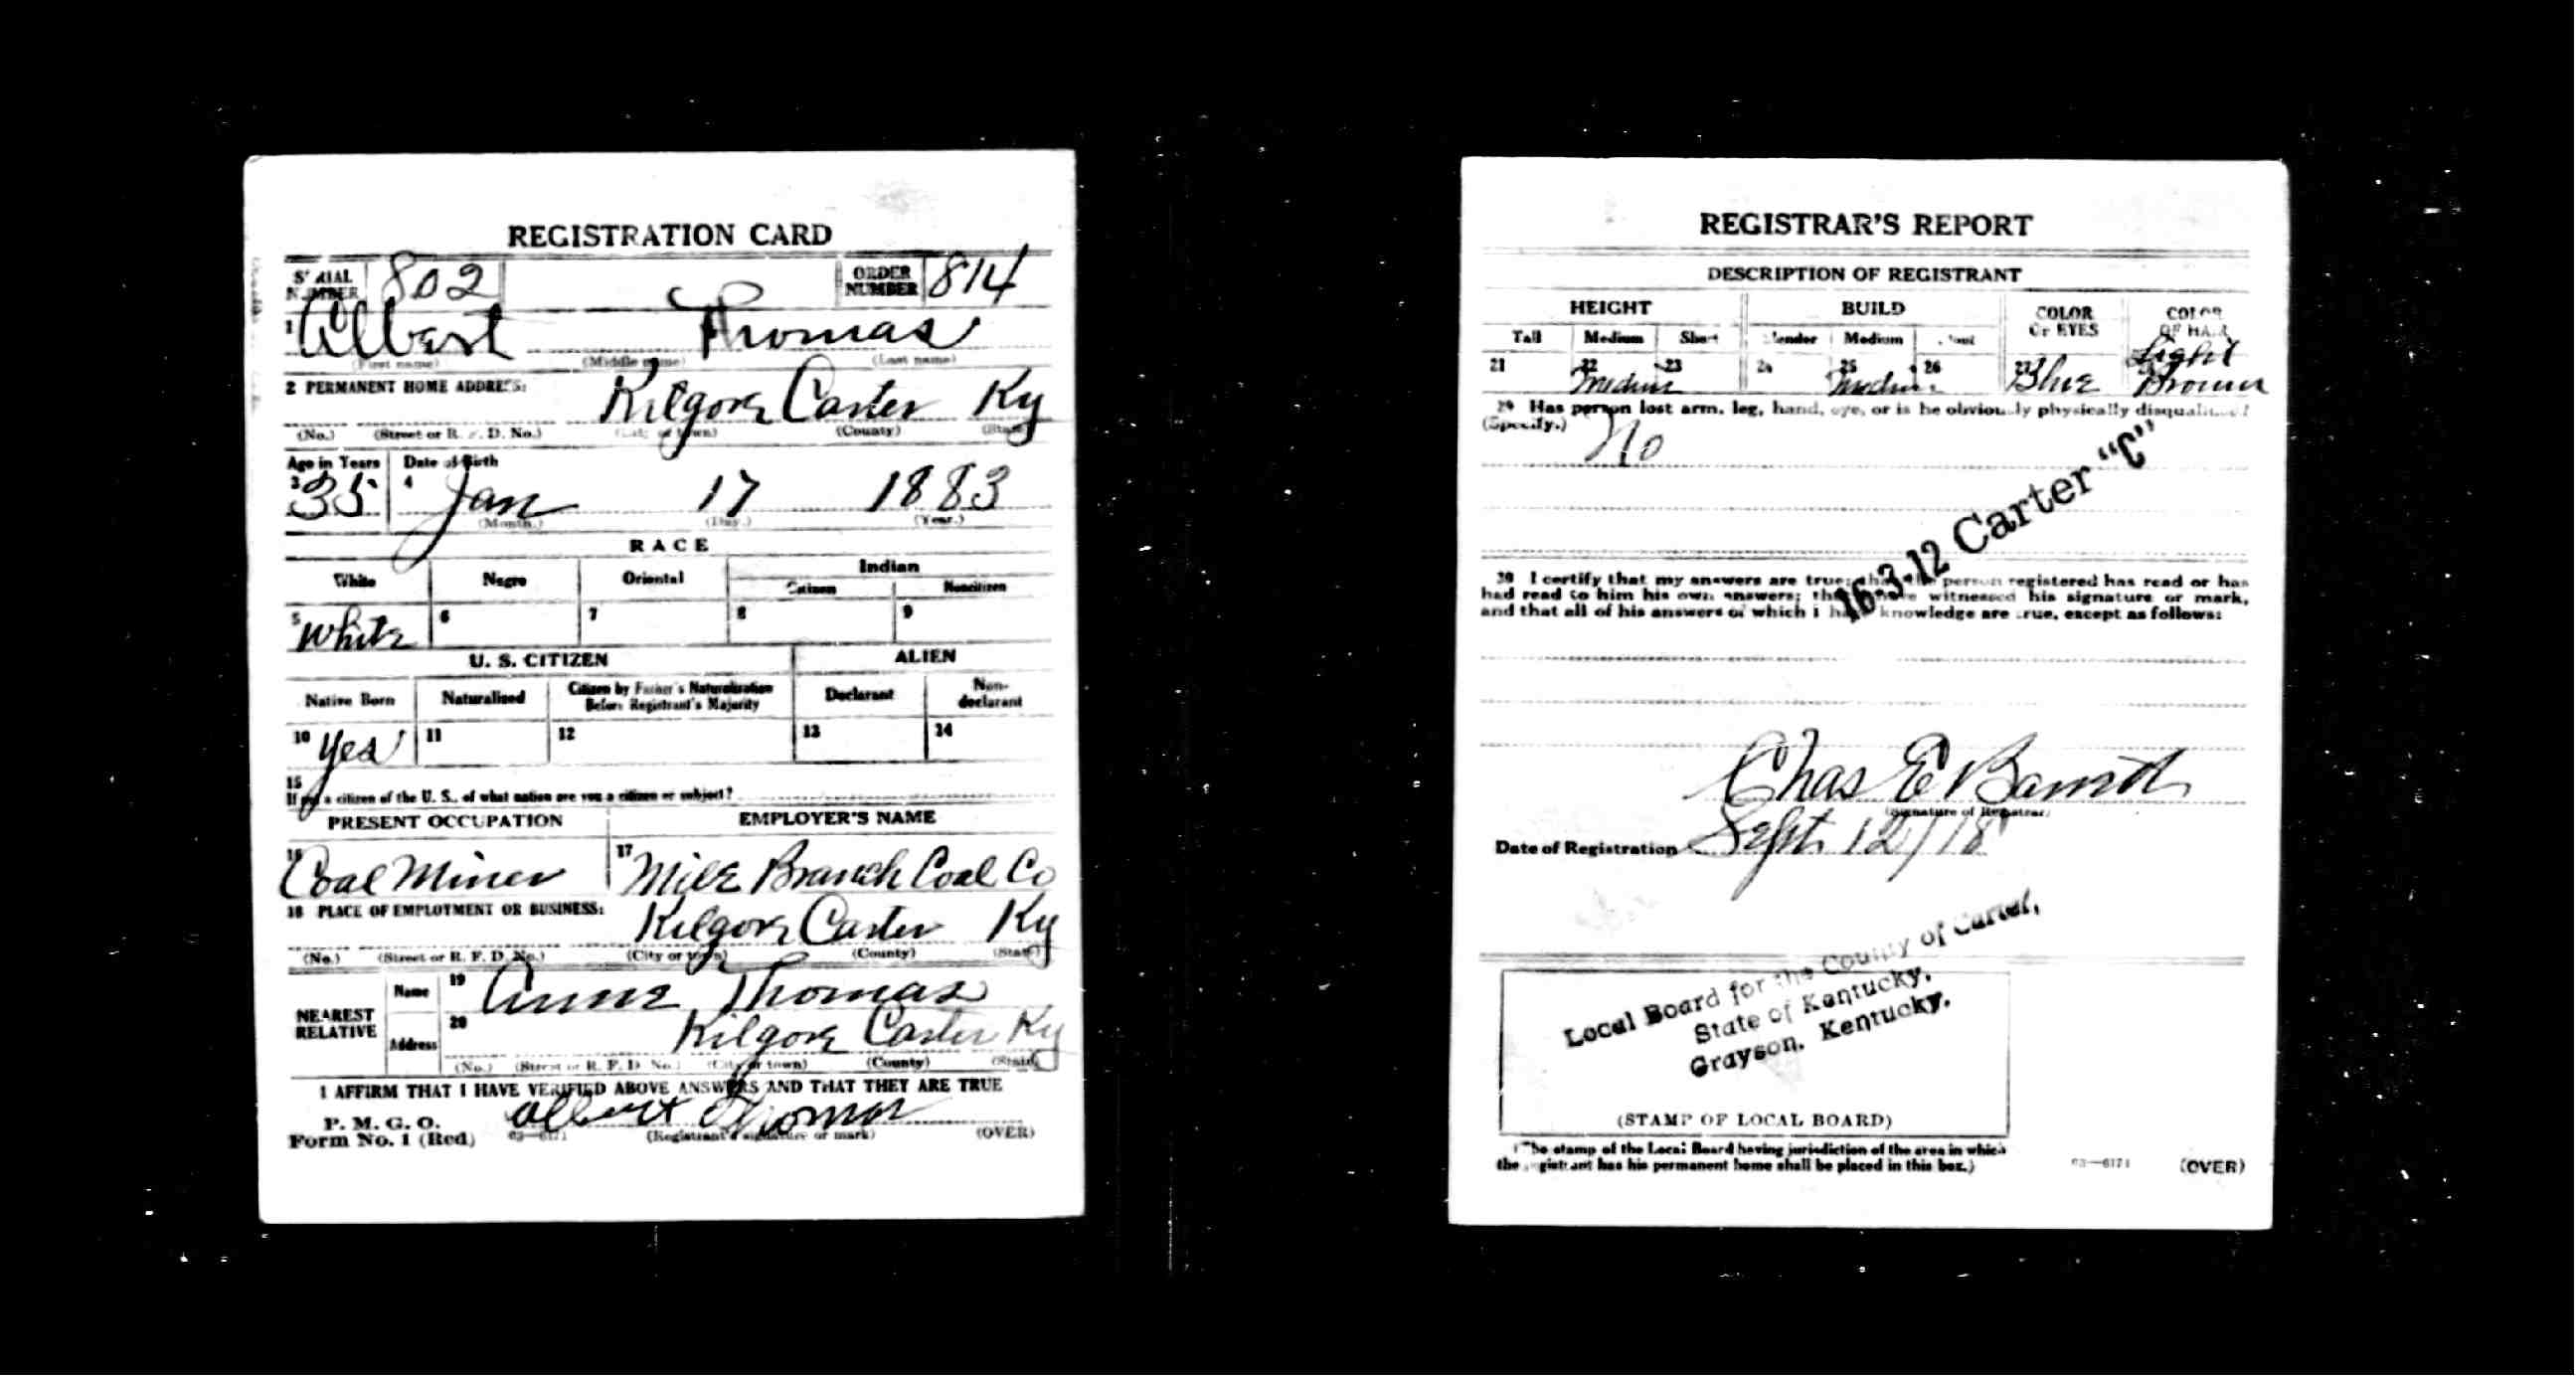 REGISTRATION CARD
SERIAL NUMBER 802 ORDER NUMBER 814
1 Albert Thomas
(First name) (Middle name) (Last name)
2 PERMANENT HOME ADDRESS:
Kilgore Carter Ky
(No.) (Street or R. F. D. No.) (City or town) (County) (State)
Age in Years Date of Birth
3 35 4 Jan 17 1883
(Month.) (Day.) (Year.)
RACE
White Negro Oriental Indian
Citizen Noncitizen
5 White 6 7 8 9
U. S. CITIZEN ALIEN
Native Born Naturalized Citizen by Father's Naturalization Before Registrant's Majority Declarant Non-declarant
10 Yes 11 12 13 14
15
If not a citizen of the U. S., of what nation are you a citizen or subject?
PRESENT OCCUPATION EMPLOYER'S NAME
16 Coal Miner 17 Mile Branch Coal Co
18 PLACE OF EMPLOYMENT OR BUSINESS:
Kilgore Carter Ky
(No.) (Street or R. F. D. No.) (City or town) (County) (State)
NEAREST RELATIVE
Name 19 Anne Thomas
Address 20 Kilgore Carter Ky
(No.) (Street or R. F. D. No.) (City or town) (County) (State)
I AFFIRM THAT I HAVE VERIFIED ABOVE ANSWERS AND THAT THEY ARE TRUE
P. M. G. O.
Form No. 1 (Red) 03—6171 Albert Thomas
(Registrant's signature or mark) (OVER)
REGISTRAR'S REPORT
DESCRIPTION OF REGISTRANT
HEIGHT BUILD COLOR OF EYES COLOR OF HAIR
Tall Medium Short Slender Medium Stout
21 22 Medium 23 24 25 Medium 26 27 Blue Light Brown
29 Has person lost arm, leg, hand, eye, or is he obviously physically disqualified?
(Specify.) No
16-3-12 Carter "C"
30 I certify that my answers are true; that the person registered has read or has
had read to him his own answers; that I have witnessed his signature or mark,
and that all of his answers of which I have knowledge are true, except as follows:
Chas E
(Signature of Registrar)
Date of Registration Sept. 12/18
Local Board for the County of Carter,
State of Kentucky,
Grayson, Kentucky.
(STAMP OF LOCAL BOARD)
(The stamp of the Local Board having jurisdiction of the area in which
the registrant has his permanent home shall be placed in this box.)
03—6171 (OVER)